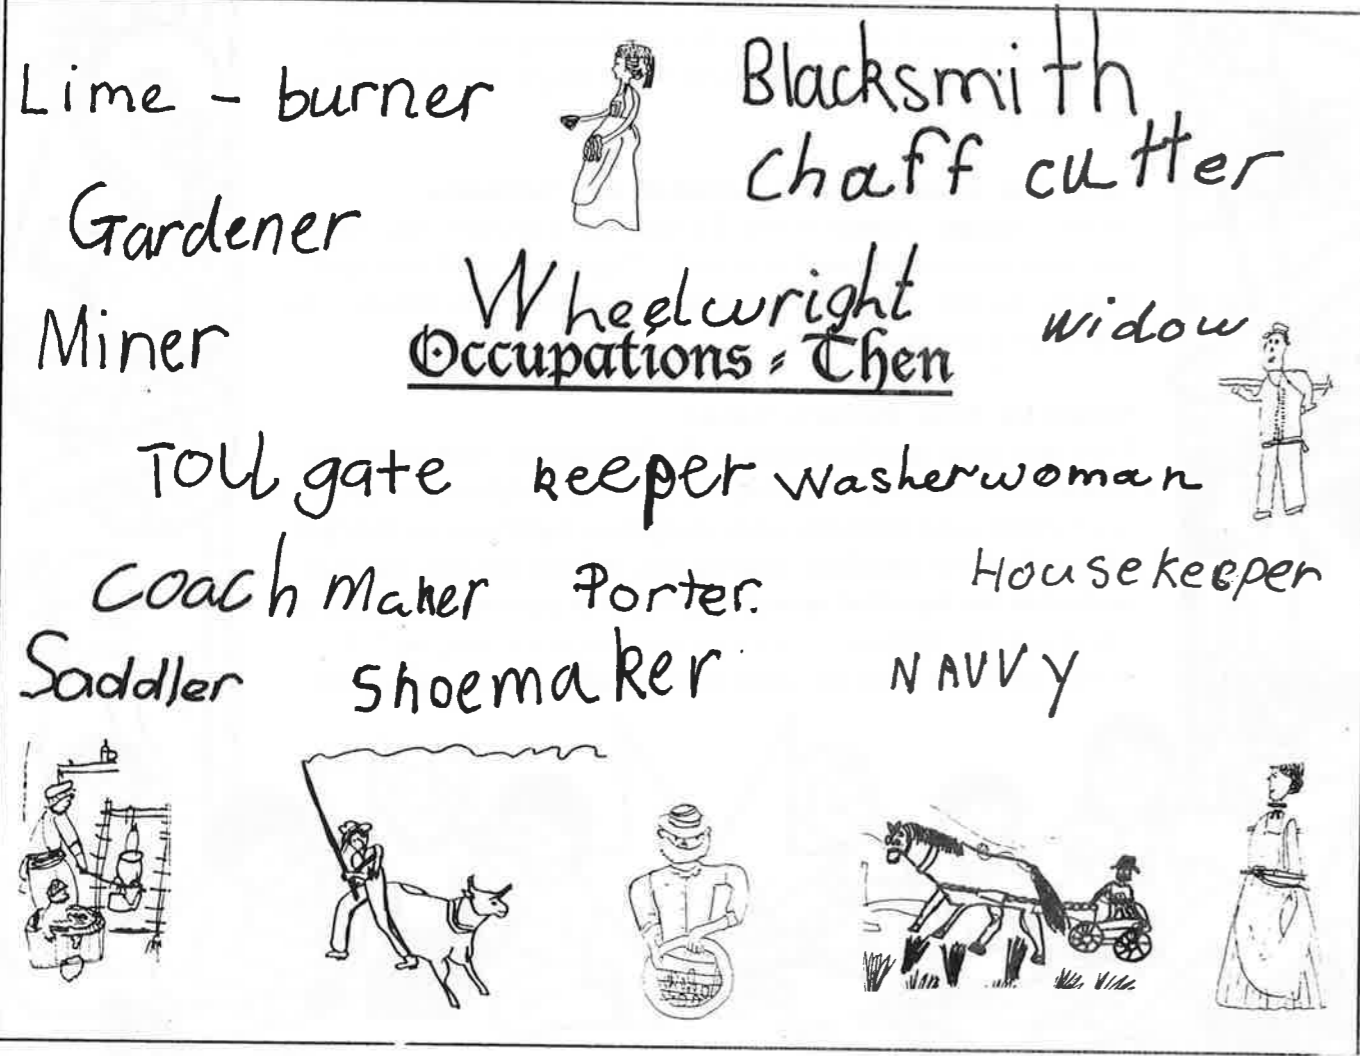 Lime - burner
Blacksmith
Chaff cutter
Gardener
Wheelwright
Miner
widow
Occupations - Then
Toll gate keeper
washerwoman
Coach Maker
Porter.
Housekeeper
Saddler
Shoemaker
NAVVY